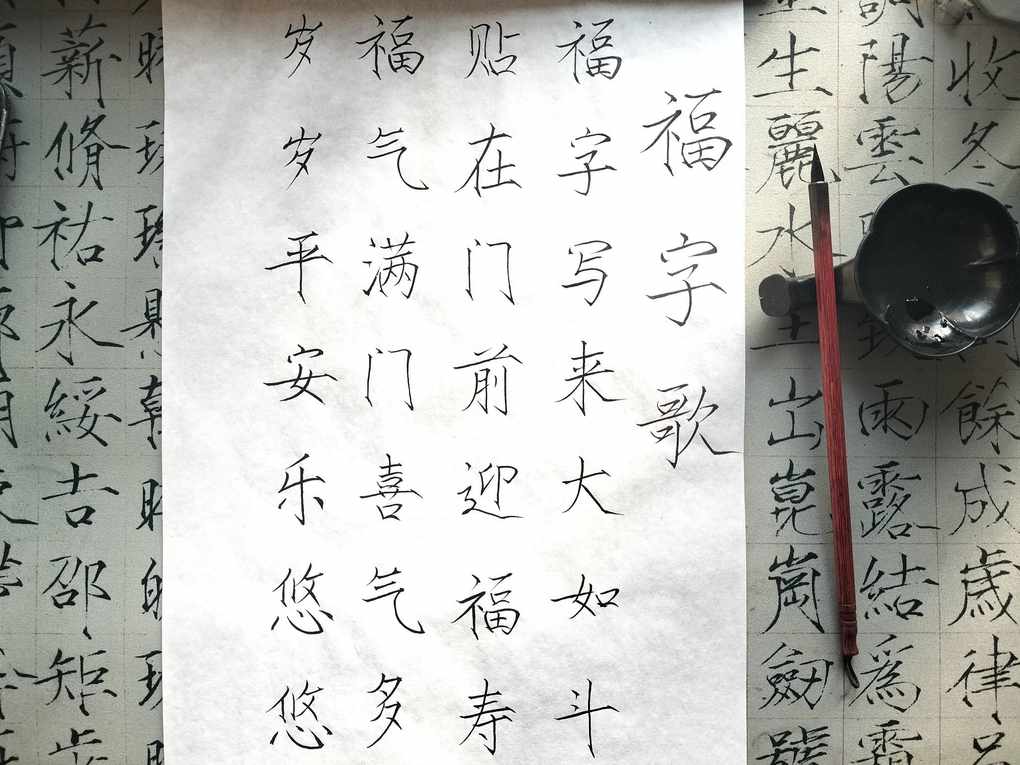 收冬餘成歲律
調陽雲致雨露結為霜
生麗水玉出崑崗劍號
福字歌
福字写来大如斗
贴在门前迎福寿
福气满门喜气多
岁岁平安乐悠悠
薪脩祐永綏吉邵矩步